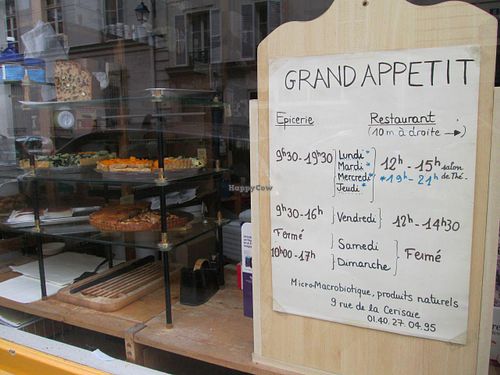 GRAND APPETIT
Epicerie
Restaurant
(10 m à droite →)
9h30 - 19h30
Lundi *
Mardi *
Mercredi *
Jeudi *
12h - 15h salon
* 19h - 21h de Thé.
9h30 - 16h
Vendredi
12h - 14h30
Fermé
Samedi
10h00 - 17h
Dimanche
Fermé
MicroMacrobiotique, produits naturels
9 rue de la Cerisaie
01.40.27.04.95
HappyCow